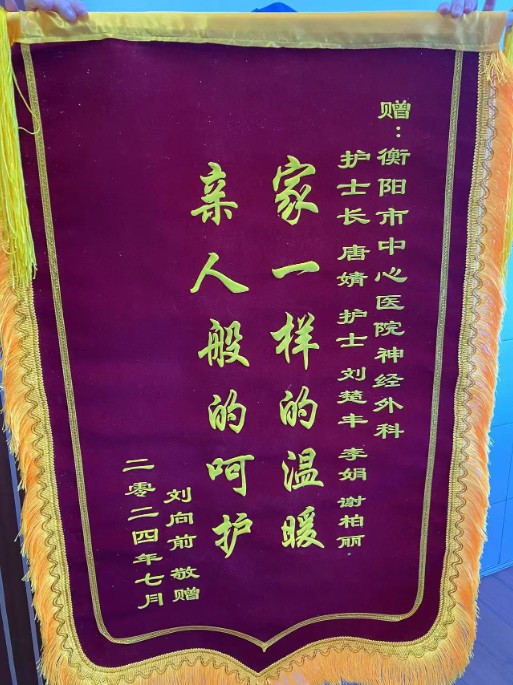 赠：衡阳市中心医院神经外科
护士长 唐婧 护士 刘楚丰 李娟 谢柏丽
家一样的温暖
亲人般的呵护
刘向前 敬赠
二零二四年七月